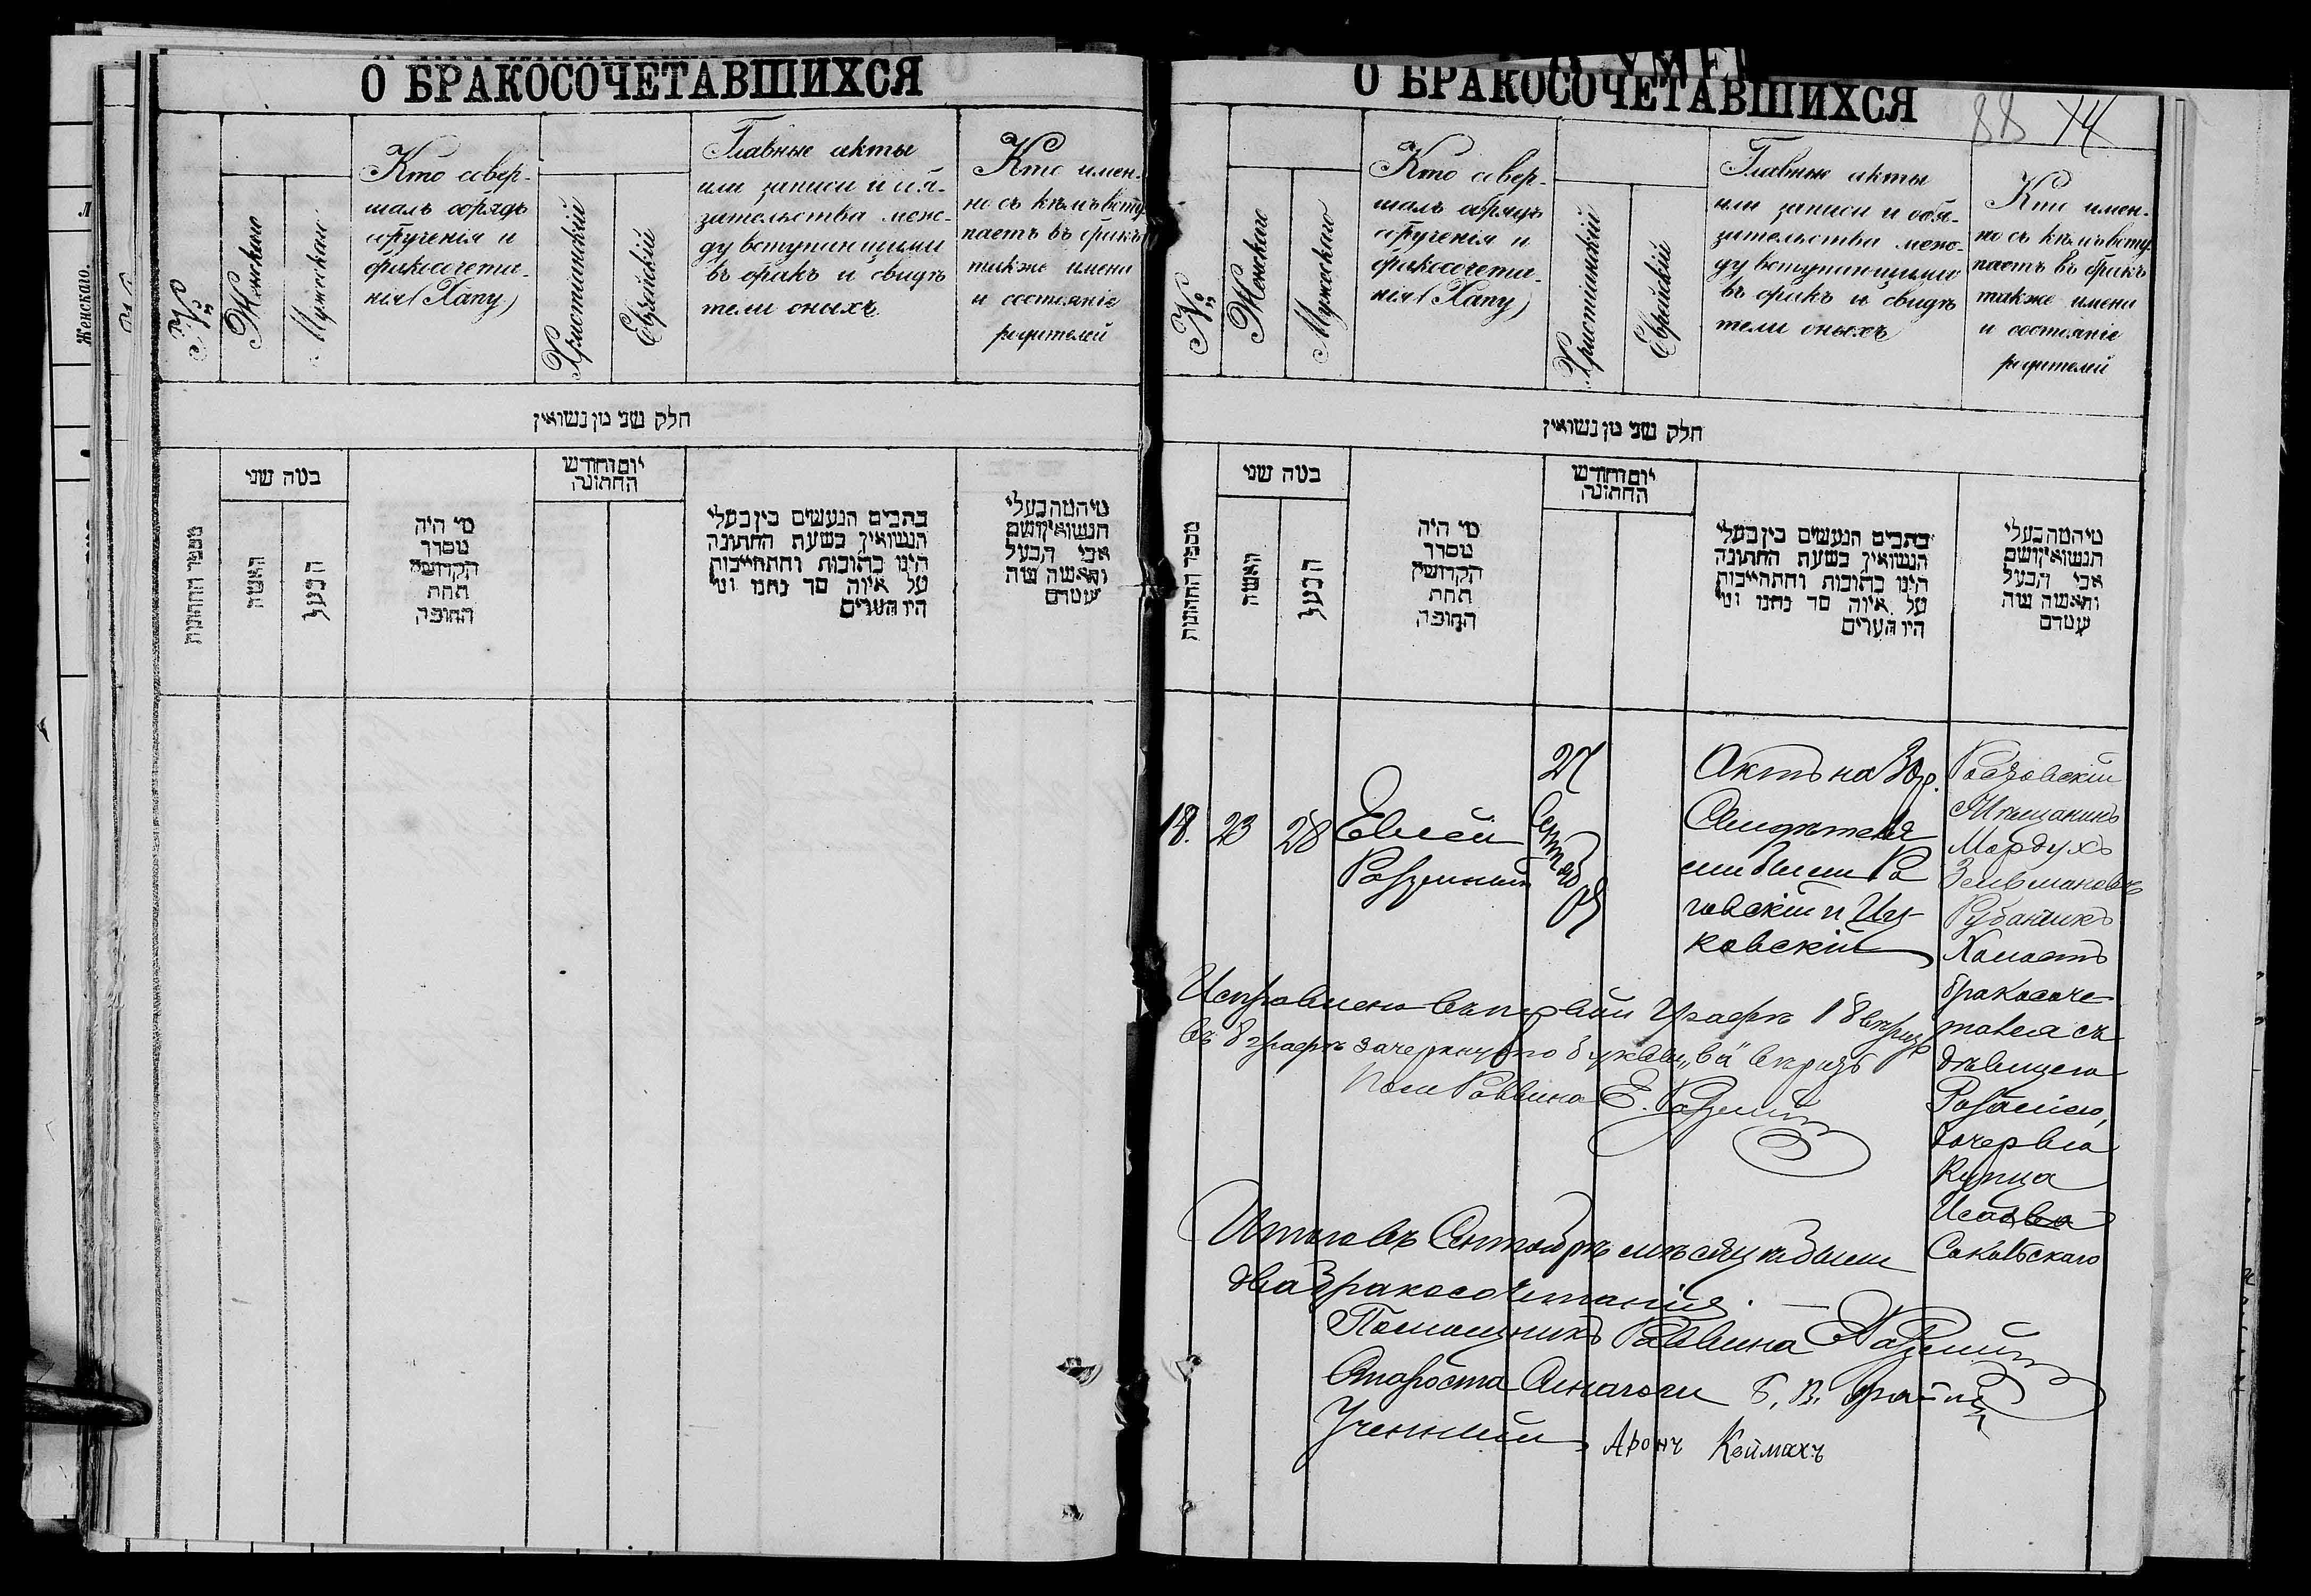 О БРАКОСОЧЕТАВШИХСЯ
№
Женскаго
Мужескаго
Кто совер-
шалъ обрядъ
обрученія и
бракосочета-
нія (Хапу)
Христіанскій
Еврейскій
Главные акты
или записи и обя-
зательства меж-
ду вступающими
въ бракъ и свидѣ
тели оныхъ.
Кто имен-
но съ кѣмъ всту
паетъ въ бракъ
также имена
и состояніе
родителей
חלק שני מן נשואין
מספר החתונות
במה שני
האשה
הבעל
מי היה
מסדר
הקדושין
תחת
החופה
יום וחודש
החתונה
כתבים הנעשים בין בעלי
הנשואין בשעת החתונה
היינו כתובות והתחייבות
על איזה סך נתנו ומי
היו העדים
מי המה בעלי
הנשואין ושם
אבי הבעל
והאשה ומה
עטרם
О БРАКОСОЧЕТАВШИХСЯ
88 14
№
Женскаго
Мужескаго
Кто совер-
шалъ обрядъ
обрученія и
бракосочета-
нія (Хапу)
Христіанскій
Еврейскій
Главные акты
или записи и обя-
зательства меж-
ду вступающими
въ бракъ и свидѣ
тели оныхъ
Кто имен-
но съ кѣмъ всту
паетъ въ бракъ
также имена
и состояніе
родителей
חלק שני מן נשואין
מספר החתונות
במה שני
האשה
הבעל
מי היה
מסדר
הקדושין
תחת
החופה
יום וחודש
החתונה
כתבים הנעשים בין בעלי
הנשואין בשעת החתונה
היינו כתובות והתחייבות
על איזה סך נתנו ומי
היו העדים
מי המה בעלי
הנשואין ושם
אבי הבעל
והאשה ומה
עטרם
18. 23 28
27
Сентяб
ря
Актъ на
были Ро
говскій и
ковскій
Мѣщанинъ
Мордухъ
Зельмановъ
Рубанчикъ
Холостъ
бракосоче-
тался съ
дѣвицею
Розаліею,
дочерью
Купца
Сокольскаго
Исправлено въ первой графѣ 18 вѣрно
въ 8 графѣ зачеркнуто буквы „ва" вѣрно
Пом Раввина Е.
Итого въ Сентябрѣ мѣсяцѣ были
два бракосочетанія. —
Помощникъ Раввина
Староста Синагоги Б. В.
Ученый Аронъ Коймахъ